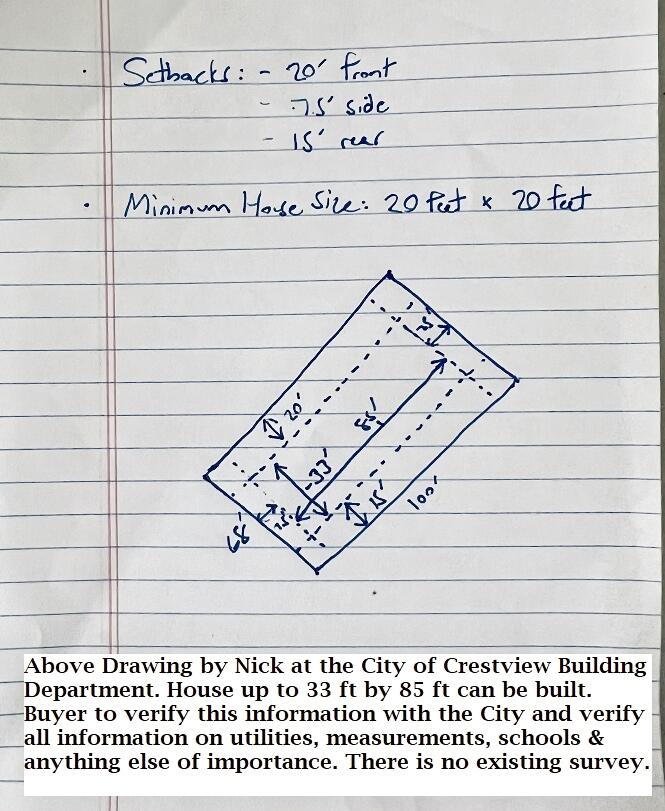 · Setbacks: - 20' front
- 7.5' side
- 15' rear
· Minimum House Size: 20 feet x 20 feet
7.5'
20'
85'
33'
15'
100'
7.5'
68'
Above Drawing by Nick at the City of Crestview Building
Department. House up to 33 ft by 85 ft can be built.
Buyer to verify this information with the City and verify
all information on utilities, measurements, schools &
anything else of importance. There is no existing survey.